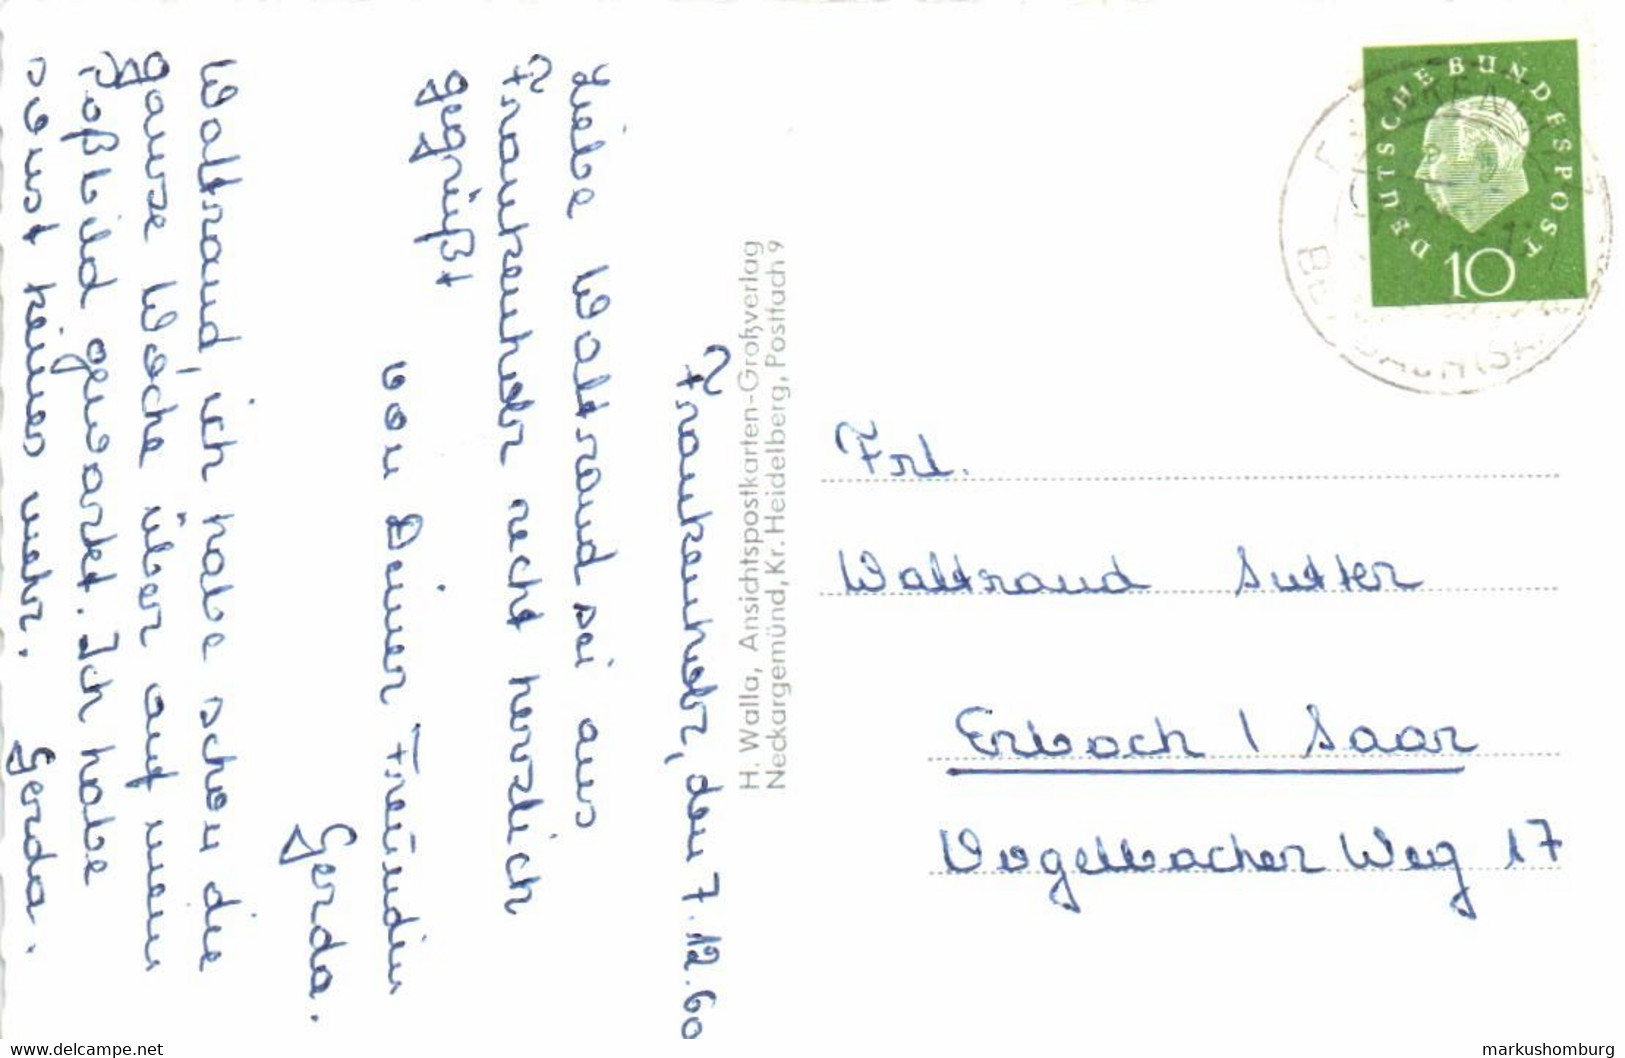 Frankenholz, den 7.12.60
Liebe Waltraud sei aus
Frankenholz recht herzlich
gegrüßt
von Deiner Freundin
Gerda.
Waltraud, ich habe schon die
ganze Woche über auf mein
Paßbild gewartet. Ich habe
sonst keines mehr.
Gerda.
H. Walla, Ansichtspostkarten-Großverlag
Neckargemünd, Kr. Heidelberg, Postfach 9
DEUTSCHE BUNDESPOST
10
Frl.
Waltraud Sutter
Erbach / Saar
Vogelbacher Weg 17
www.delcampe.net
markushomburg